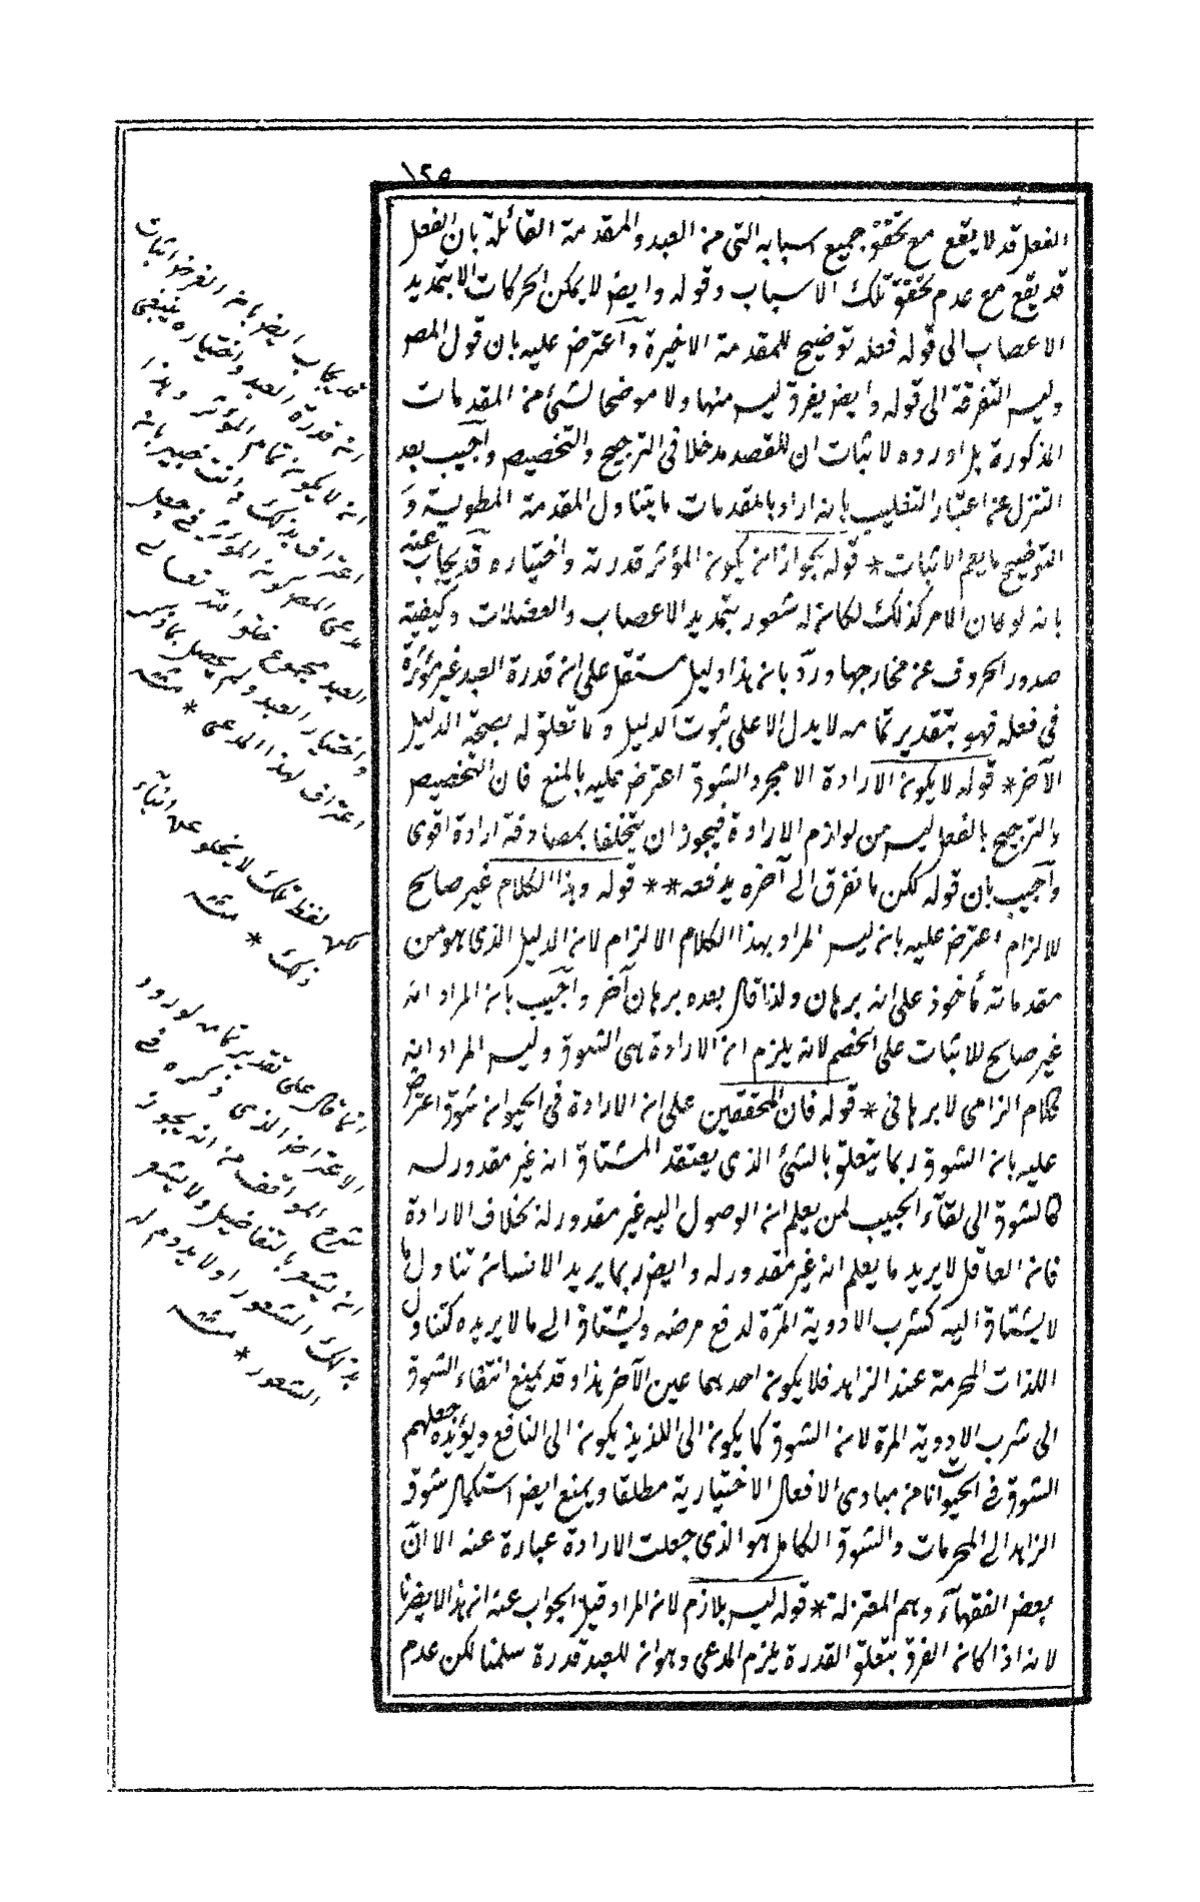 ١٢٥
الفعل قد لا يقع مع تحقق جميع اسبابه التى من العبد والمقدمة القائلة بان الفعل
قد يقع مع عدم تحقق تلك الاسباب وقوله وايض لا يمكن الحركات الا بتمديد
الاعصاب الى قوله فعله توضيح للمقدمة الاخيرة واعترض عليه بان قول المص
وليس التفرقة الى قوله وايض يفرق ليس منها ولا موضحا لشئ من المقدمات
المذكورة بل اورده لاثبات ان للقصد مدخلا فى الترجيح والتخصيص واجيب بعد
التنزل عن اعتبار التغليب بانه اراد بالمقدمات ما يتناول المقدمة المطوية و
التوضيح ما يعم الاثبات * قوله لجواز ان يكون المؤثر قدرته واختياره قد يجاب عنه
بانه لو كان الامر كذلك لكان له شعور بتمديد الاعصاب والعضلات وكيفية
صدور الحروف عن مخارجها ورد بان هذا دليل مستقل على ان قدرة العبد غير مؤثرة
فى فعله فهو بتقدير تمامه لا يدل الا على ثبوت الدليل وما تعلق له بصحة الدليل
الآخر * قوله لا يكون الارادة الا مجرد الشوق اعترض عليه بالمنع فان التخصيص
والترجيح بالفعل ليس من لوازم الارادة فيجوز ان يتخلفا بمصادفة ارادة اقوى
واجيب بان قوله لكن ما نفرق الى آخره يدفعه ** قوله وهذا الكلام غير صالح
للالزام اعترض عليه بانه ليس المراد بهذا الكلام الالزام لان الدليل الذى هو من
مقدماته مأخوذ على انه برهان ولذا قال بعده برهان آخر واجيب بان المراد انه
غير صالح للاثبات على الخصم لانه يلزم ان الارادة هى الشوق وليس المراد انه
كلام الزامى لا برهانى * قوله فان المحققين على ان الارادة فى الحيوان شوق اعترض
عليه بان الشوق ربما يتعلق بالشئ الذى يعتقد المشتاق انه غير مقدور له
كالشوق الى لقاء الحبيب لمن يعلم ان الوصول اليه غير مقدور له بخلاف الارادة
فان العاقل لا يريد ما يعلم انه غير مقدور له وايض ربما يريد الانسان تناول ما
لا يشتاق اليه كشرب الادوية المرة لدفع مرضه ويشتاق الى ما لا يريده كتناول
اللذات المحرمة عند الزاهد فلا يكون احدهما عين الآخر هذا وقد يمنع انتفاء الشوق
الى شرب الادوية المرة لان الشوق كما يكون الى اللذيذ يكون الى النافع ويؤيده جعلهم
الشوق فى الحيوانات من مبادى الافعال الاختيارية مطلقا ويمنع ايض استكمال شوق
الزاهد الى المحرمات والشوق الكامل هو الذى جعلت الارادة عبارة عنه الا ان
بعض الفقهاء وهم المعتزلة * قوله ليس بلازم لان المراد قيل الجواب عنه ان هذا لا يضرنا
لانه اذا كان الفرق بتعلق القدرة يلزم المدعى وهو ان للعبد قدرة سلمنا لكن عدم
قد يجاب ايض بان الغرض اثبات
ان قدرة العبد واختياره ينبغى
ان لا يكون تمام المؤثر وهذا
اعتراف بذلك وانت خبير بان
مدعى المص كون المؤثر فى فعل
العبد مجموع خلق الله تعالى
واختيار العبد ولم يحصل بما ذكر
اعتراف لهذا المدعى * منه
لكن لفظ تلك لا يخلو عن اباء
ذلك * منه
انما قال على تقدير تمامه لورود
الاعتراض الذى ذكره فى
شرح المواقف من انه يجوز
ان يشعر بالتفاصيل ولا يشعر
بذلك الشعور او لا يدوم له
الشعور * منه